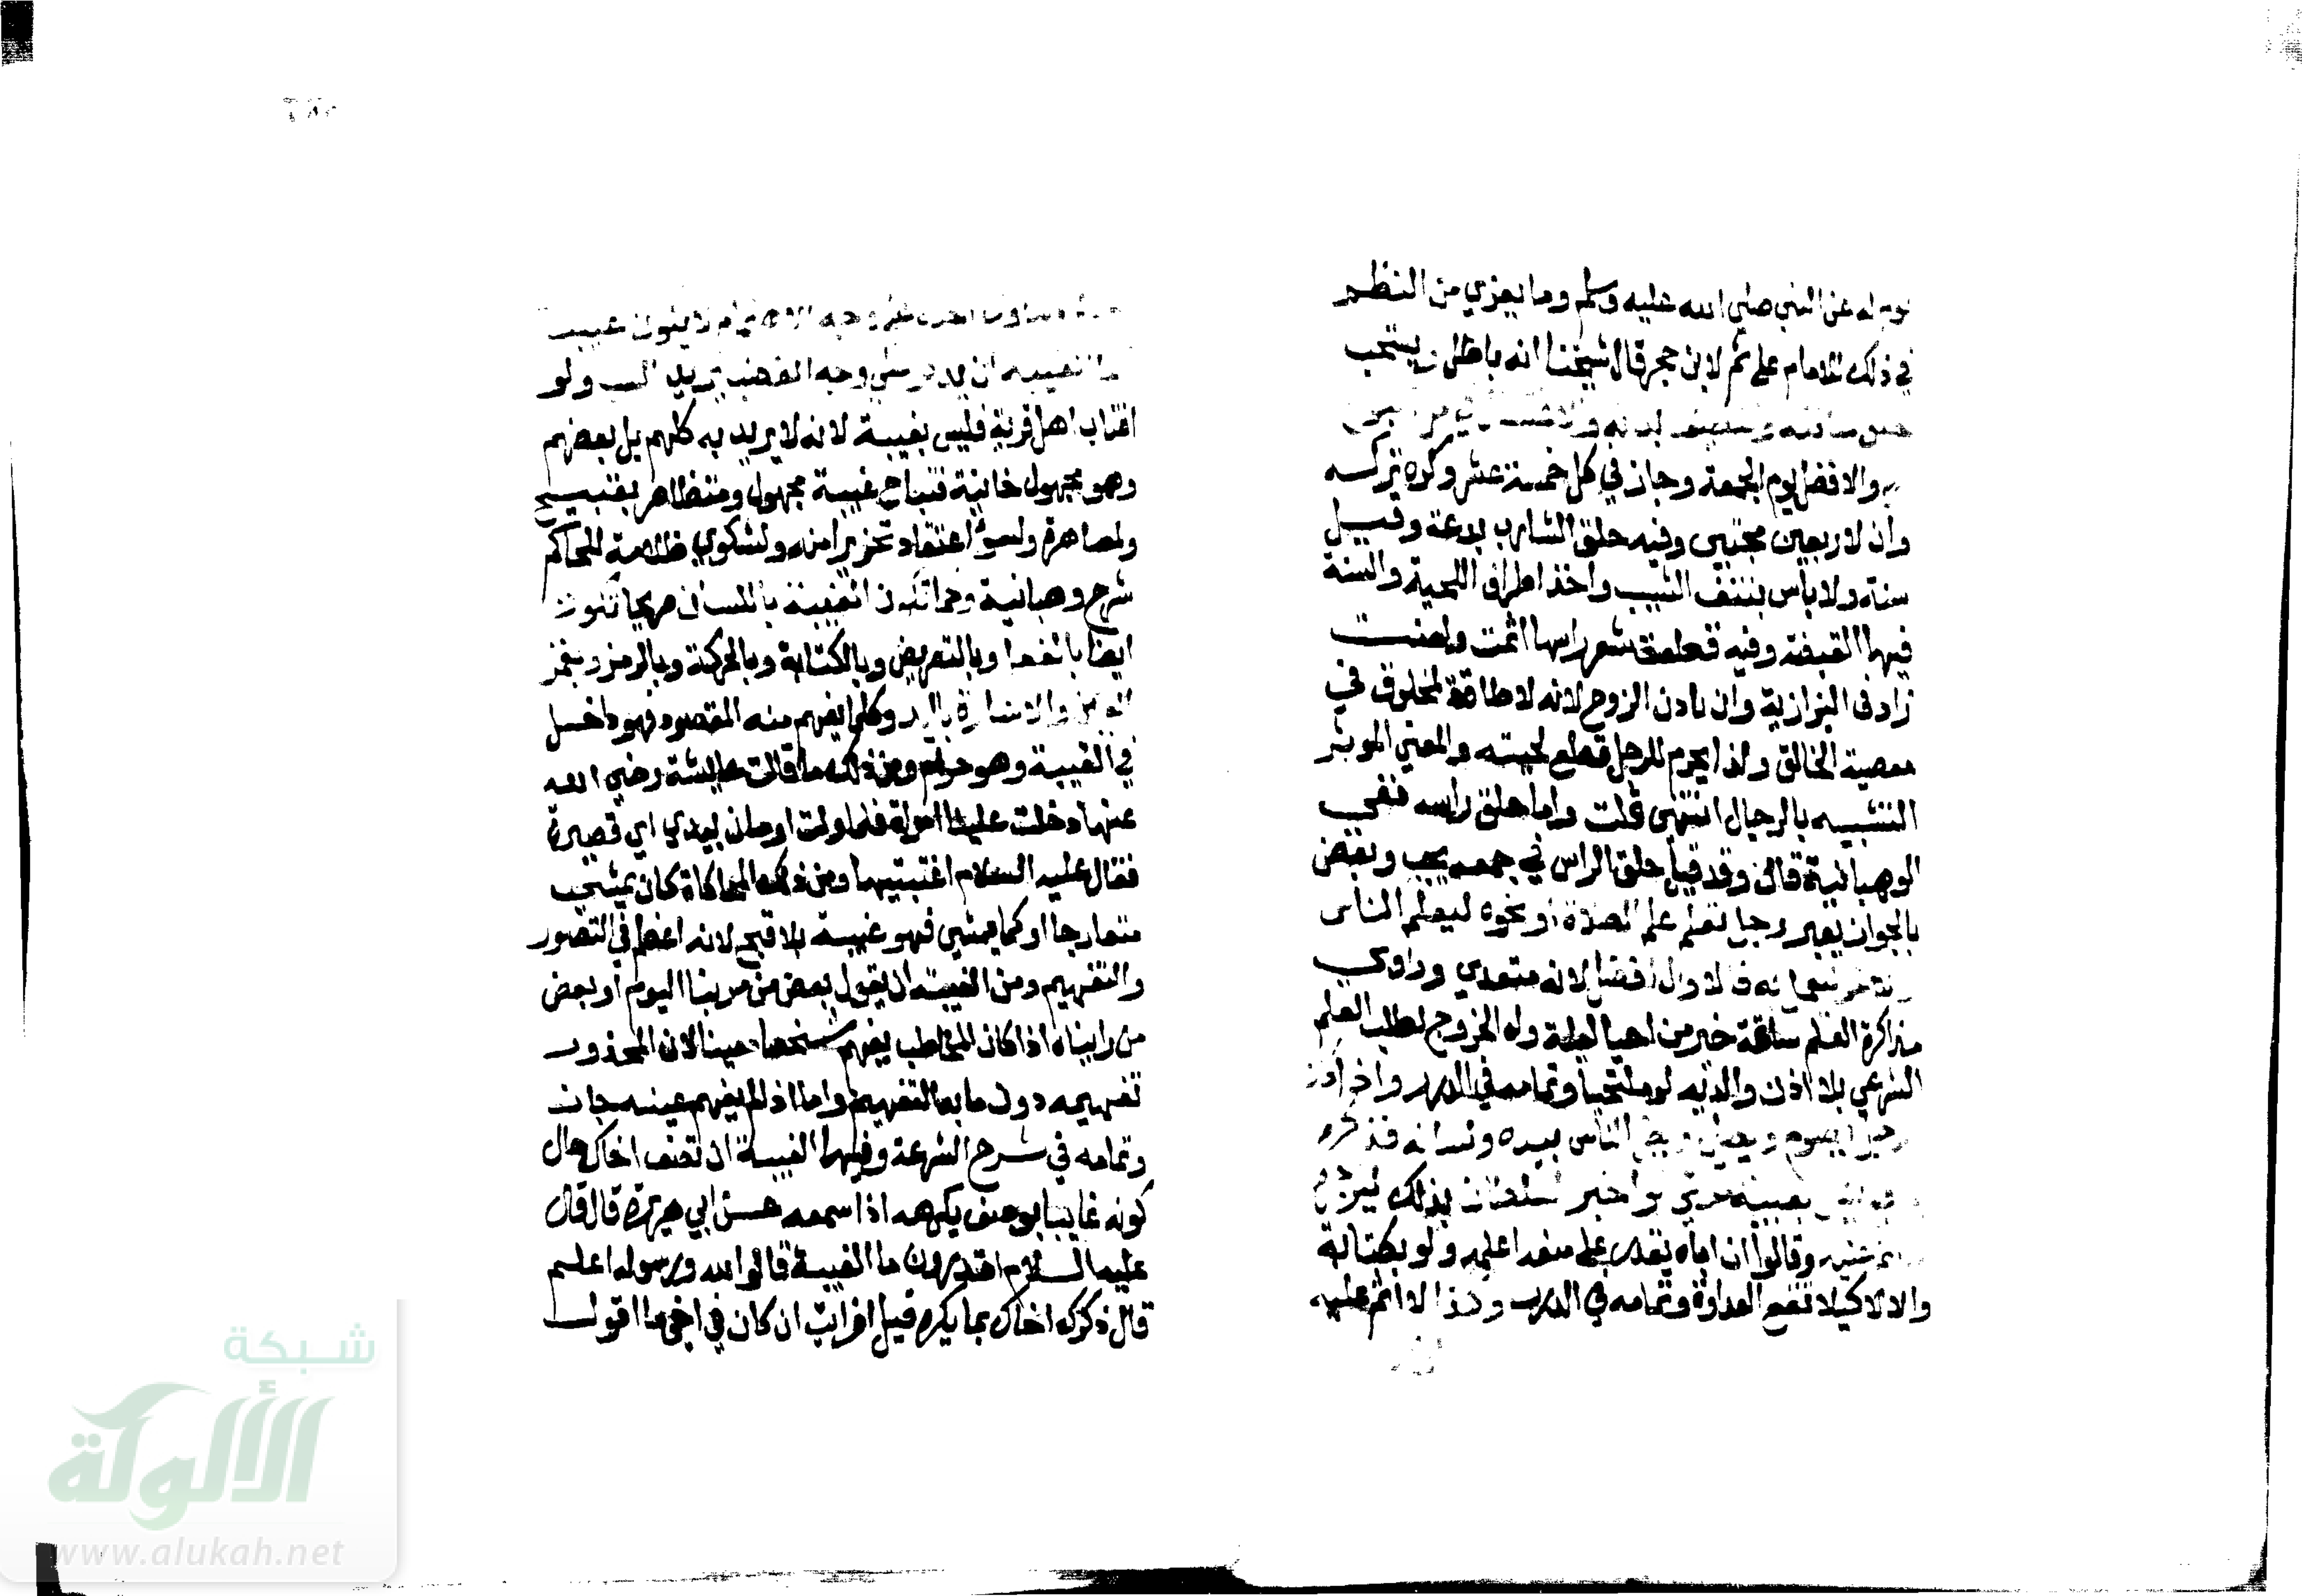 يوم له عن النبي صلى الله عليه وسلم وما يعزي من النظم
في ذلك للامام علي ثم لابن حجر قال شيخنا انه باطل ويستحب
حلق عانته وتنظيف بدنه
والافضل يوم الجمعة وجاز في كل خمسة عشر وكره تركه
وان لاربعين مجتبى وفيه حلق الشارب بدعة وقيل
سنة ولا بأس بنتف الشيب واخذ اطراف اللحية والسنة
فيها القبضة وفيه قطعت شعر راسها اثمت ولعنت
زاد في البزازية وان باذن الزوج لانه لا طاقة لمخلوق في
معصية الخالق ولذا يحرم للرجل قطع لحيته والمعني الموثر
التشبيه بالرجال انتهى قلت واما حلق راسه ففي
الوهبانية قال وقد قيل حلق الراس في جمعه يحب وبعض
بالجواز يعبر رجل تعلم علم الصلاة او نحوه ليعلم الناس
فالاول افضل لانه متعدي وراوي
مذاكرة العلم ساعة خير من احيا ليلة وله الخروج لطلب العلم
الشرعي بلا اذن والديه لو ملتحيا وتمامه في الدرر واذا كان
رجل يصوم ويصلي ويضر الناس بيده ولسانه فذكره
بغيبة حتي لو اخبر السلطان بذلك ليزجره
وقالوا ان اباه يقدر على منعه اعلمه ولو بكتابة
والا لا كيلا تقع العداوة وتمامه في الدرر وكذا لا اثم عليه
لو ذكر مساوي اخيه على وجه الاهتمام لا يكون غيبة
انما الغيبة ان يذكر على وجه الغضب يريد السب ولو
اغتاب اهل قرية فليس بغيبة لانه لا يريد به كلهم بل بعضهم
وهو مجهول خانية فتباح غيبة مجهول ومتظاهر بقبيح
ولمصاهرة ولسؤ اعتقاد تحزيرا منه ولشكوي ظلامة للحاكم
شرح وهبانية وكما تكون الغيبة باللسان صريحا تكون
ايضا بالفعل وبالتعريض وبالكتابة وبالحركة وبالرمز وبغمز
العين والاشارة باليد وكلما يفهم منه المقصود فهو داخل
في الغيبة وهو حرام ومن ذلك ما قالت عايشة رضي الله
عنها دخلت علينا امراة فلما ولت اومات بيدي اي قصيرة
فقال عليه السلام اغتبتيها ومن ذلك المحاكاة كان يمشي
متعارجا او كما يمشي فهو غيبة بل اقبح لانه اعظم في التصور
والتفهيم ومن الغيبة ان يقول بعض من مر بنا اليوم او بعض
من رايناه اذا كان المخاطب يفهم شخصا معينا لان المحذور
تفهيمه دون ما به التفهيم واما اذا لم يفهم عينه جاز
وتمامه في شرح الشرعة وفيها الغيبة ان تصف اخاك حال
كونه غايبا بوصف يكرهه اذا سمعه عن ابي هريرة قال قال
عليه السلام اتدرون ما الغيبة قالوا الله ورسوله اعلم
قال ذكرك اخاك بما يكره قيل افرايت ان كان في اخي ما اقول
شبكة
الألوكة
www.alukah.net